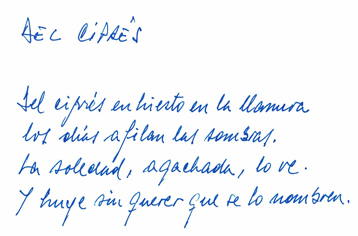 DEL CIPRÉS
Del ciprés enhiesto en la llanura
los días afilan las sombras.
La soledad, agachada, lo ve.
Y huye sin querer que se lo nombren.